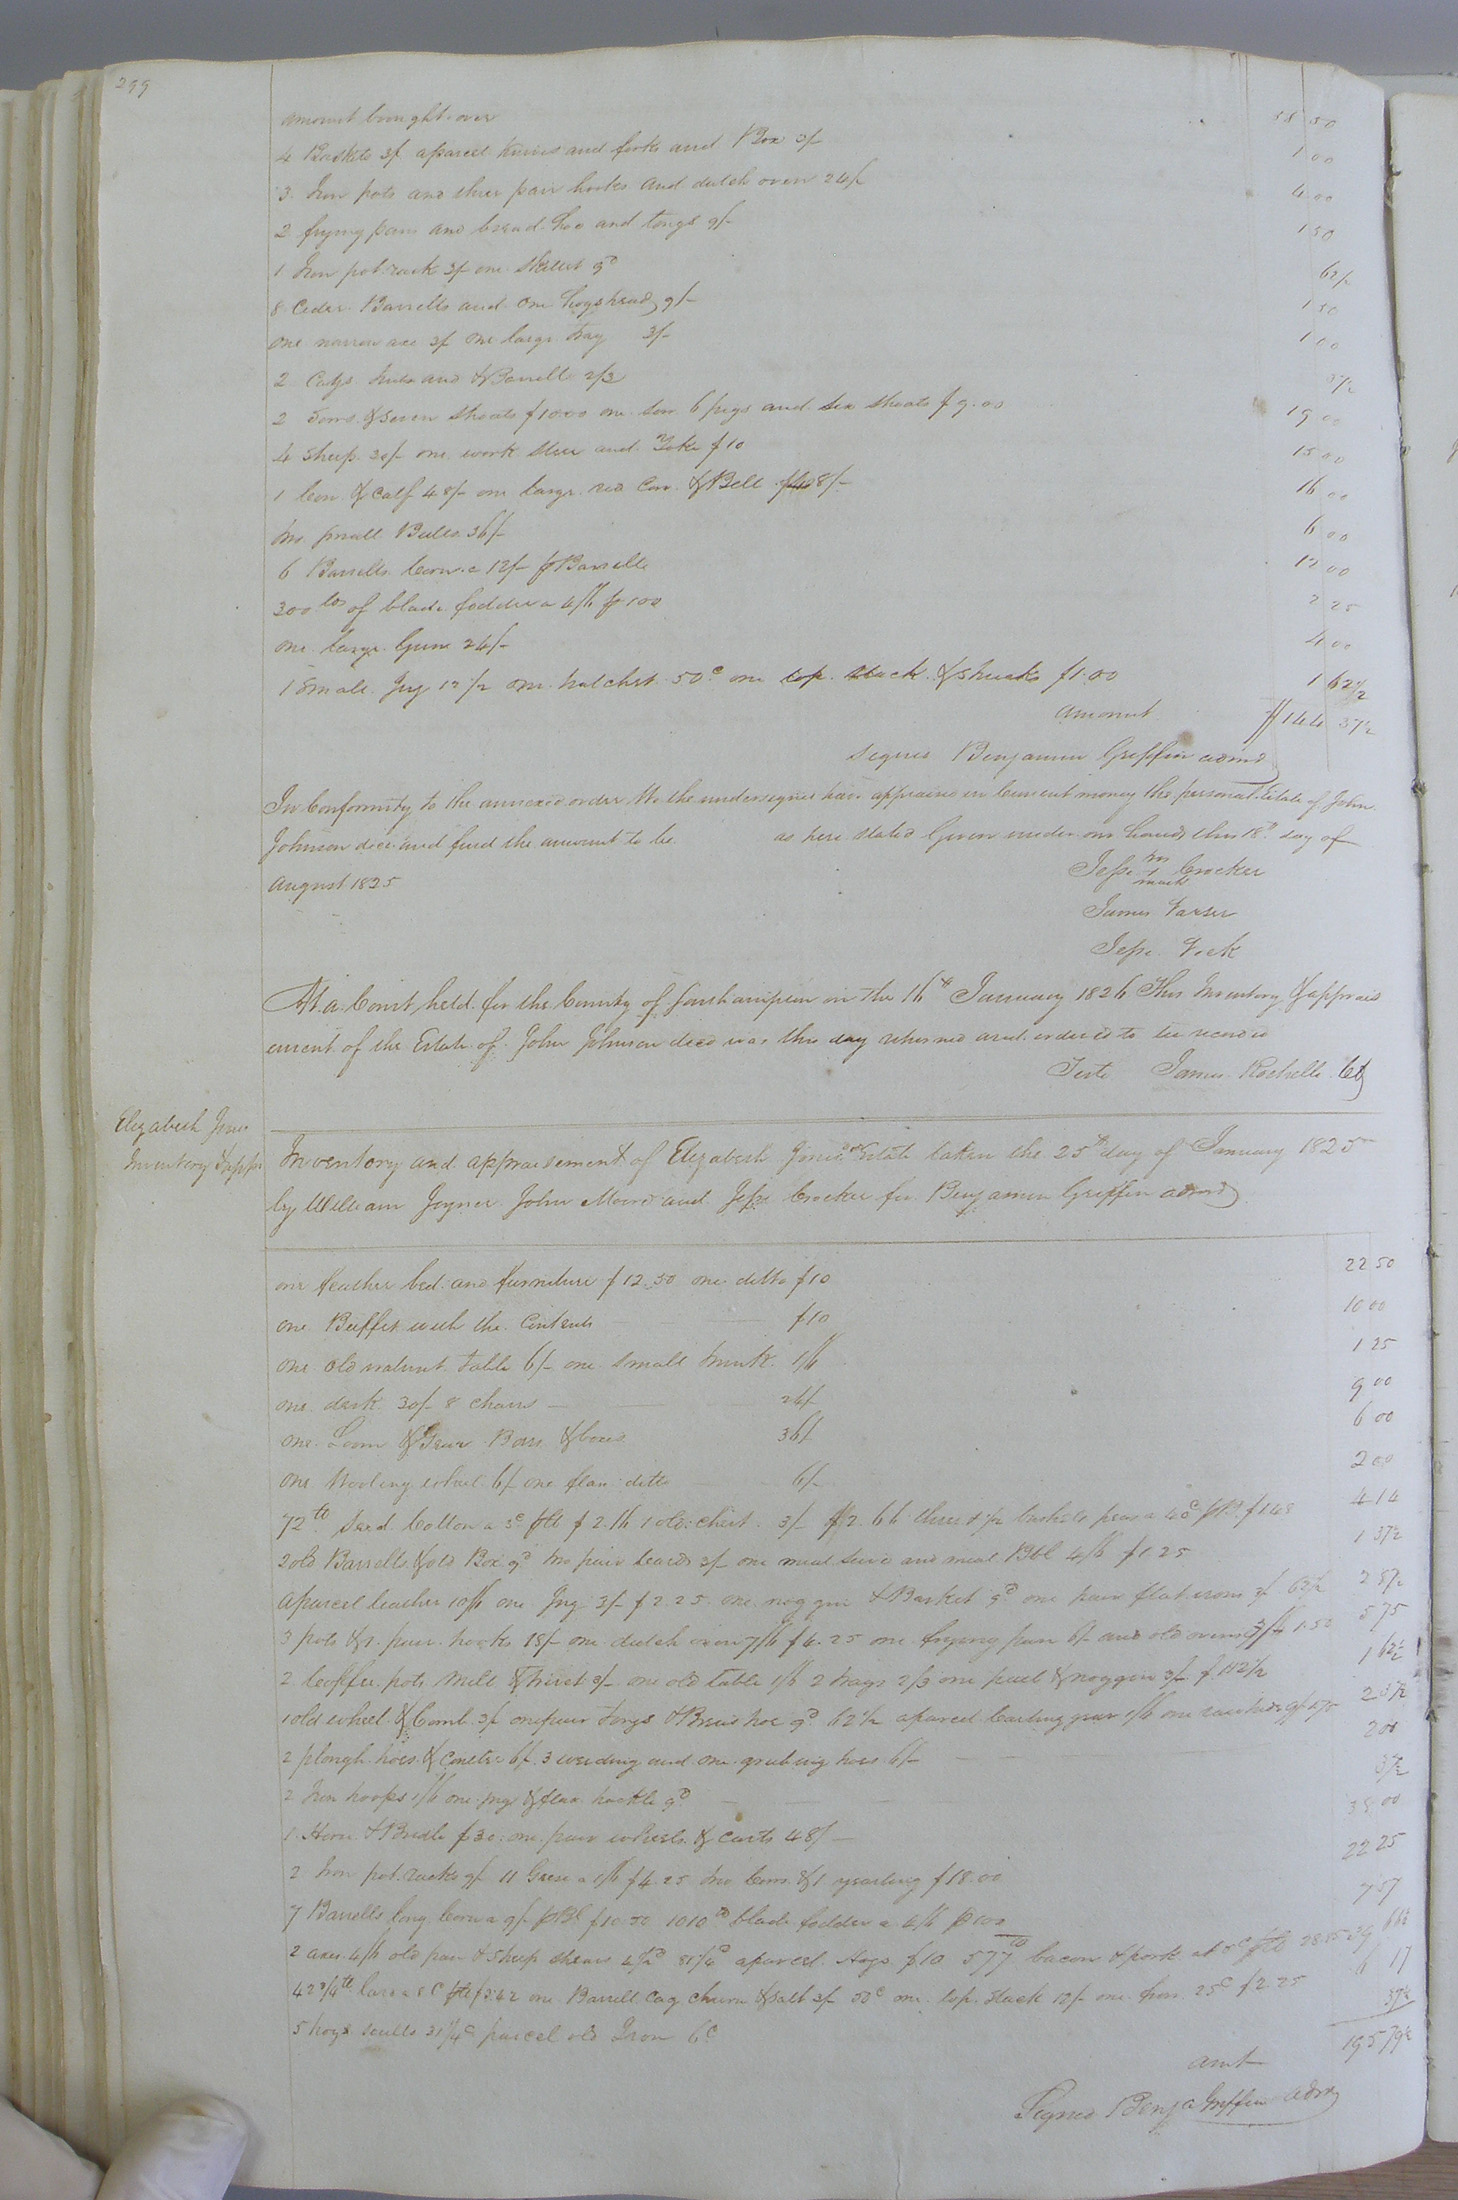 299
amount brought over 58 50
4 Baskets 3/ aparcel knives and forks and Box 3/ 1 00
3 Iron pots and three pair hooks and dutch oven 24/ 4 00
2 frying pans and bread hoe and tongs 9/ 1 50
1 Iron pot rack 3/ one skillet 9d 62 1/2
8 Ceder Barrells and one hogshead 9/ 1 50
one narrow axe 3/ one large tray 3/ 1 00
2 Cags tubs and & Barrells 2/3 37 1/2
2 Sows & seven shoats $1000 one sow 6 pigs and six shoats $9.00 19 00
4 Sheep 30/ one work steer and Yoke $10 15 00
1 Cow & Calf 48/ one large red Cow & Bell 48/ 16 00
two small Bulls 36/ 6 00
6 Barrells Corn a 12/ p Barrells 12 00
300 lbs of blade fodder a 4/6 p 100 2 25
one large Gun 24/ 4 00
1 Small Jug 12 1/2 one hatchet 50c one top stack & shucks $1.00 1 62 1/2
amount $144 37 1/2
Signed Benjamin Griffin admr
In Conformity to the annexed order We the undersigned have appraised in Current money the personal Estate of John
Johnson decd and find the amount to be as here stated Given under our hands this 18th day of
August 1825
Jesse his mark Crocker
James
Jesse Vick
At a Court held for the County of Southampton on the 16th January 1826 This Inventory & apprais
ement of the Estate of John Johnson decd was this day returned and ordered to be recorded
Teste James Rochelle Clk
Elizabeth Jones
Inventory & appr
Inventory and appraisement of Elizabeth Jones Estate taken the 25th day of January 1825
by William Joyner John Moore and Jesse Crocker for Benjamin Griffin admr
one feather bed and furniture $12.50 one ditto $10 22 50
one Buffet with the Contents $10 10 00
one old walnut table 6/ one small trunk 1/6 1 25
one desk 30/ 8 chairs 24/ 9 00
one Loom & Gear Bars & boxes 36/ 6 00
one Wooling wheel 6/ one flax ditto 6/ 2 00
72 lb Seed Cotton a 3c plb $2.16 1 old chest 3/ $2.66 three & 1/2 bushels peas a 40c pB $1.48 4 14
2 old Barrells & old Box 9d two pair Cards 3/ one meal seive and meal Bbl 4/6 $1.25 1 37 1/2
aparcel leather 10/6 one Jug 3/ $2.25 one noggin & Basket 9d one pair flat irons 3/ 62 1/2 2 87 1/2
3 pots & 2 pair hooks 18/ one dutch oven 7/6 $4.25 one frying pan 6/ and old ovens 3/ 1.50 5 75
2 Coffee pots mill & trivet 3/ one old table 1/6 2 trays 2/3 one pail & noggin 3/ $1 12 1/2 1 62 1/2
1 old wheel & Comb 3/ one pair tongs & Bread hoe 9d 62 1/2 aparcel Carting gear 1/6 one raw hide 9/ 1.75 2 37 1/2
2 plough hoes & Coulter 6/ 3 weeding and one grubing hoes 6/ 2 00
2 Iron hoops 1/6 one jug & flax hackle 9d 37 1/2
1 Horse & Bridle $30 one pair wheels & Carts 48/ 38 00
2 Iron pot racks 9/ 11 Geese a 1/6 $4.25 two Cows & 1 yearling $18.00 22 25
7 Barrells long Corn a 9/ pBl $10.50 1010 lb blade fodder a 4/6 p 100 7 57
2 axes 4/6 old pan & Sheep shears 4 1/2d 81 1/4d aparcel Hogs $10 577 lb bacon & pork at 5c plb 28.85
42 3/4 lb lard a 8c plb $3.42 one Barrell Cag churn & salt 3/ 50c one top stack 12/ one 25c $2.25 6 17
5 hogs sculls 31 1/4c parcel old Iron 6c 37 1/2
amt 195 79 1/2
Signed Benja Griffin admr